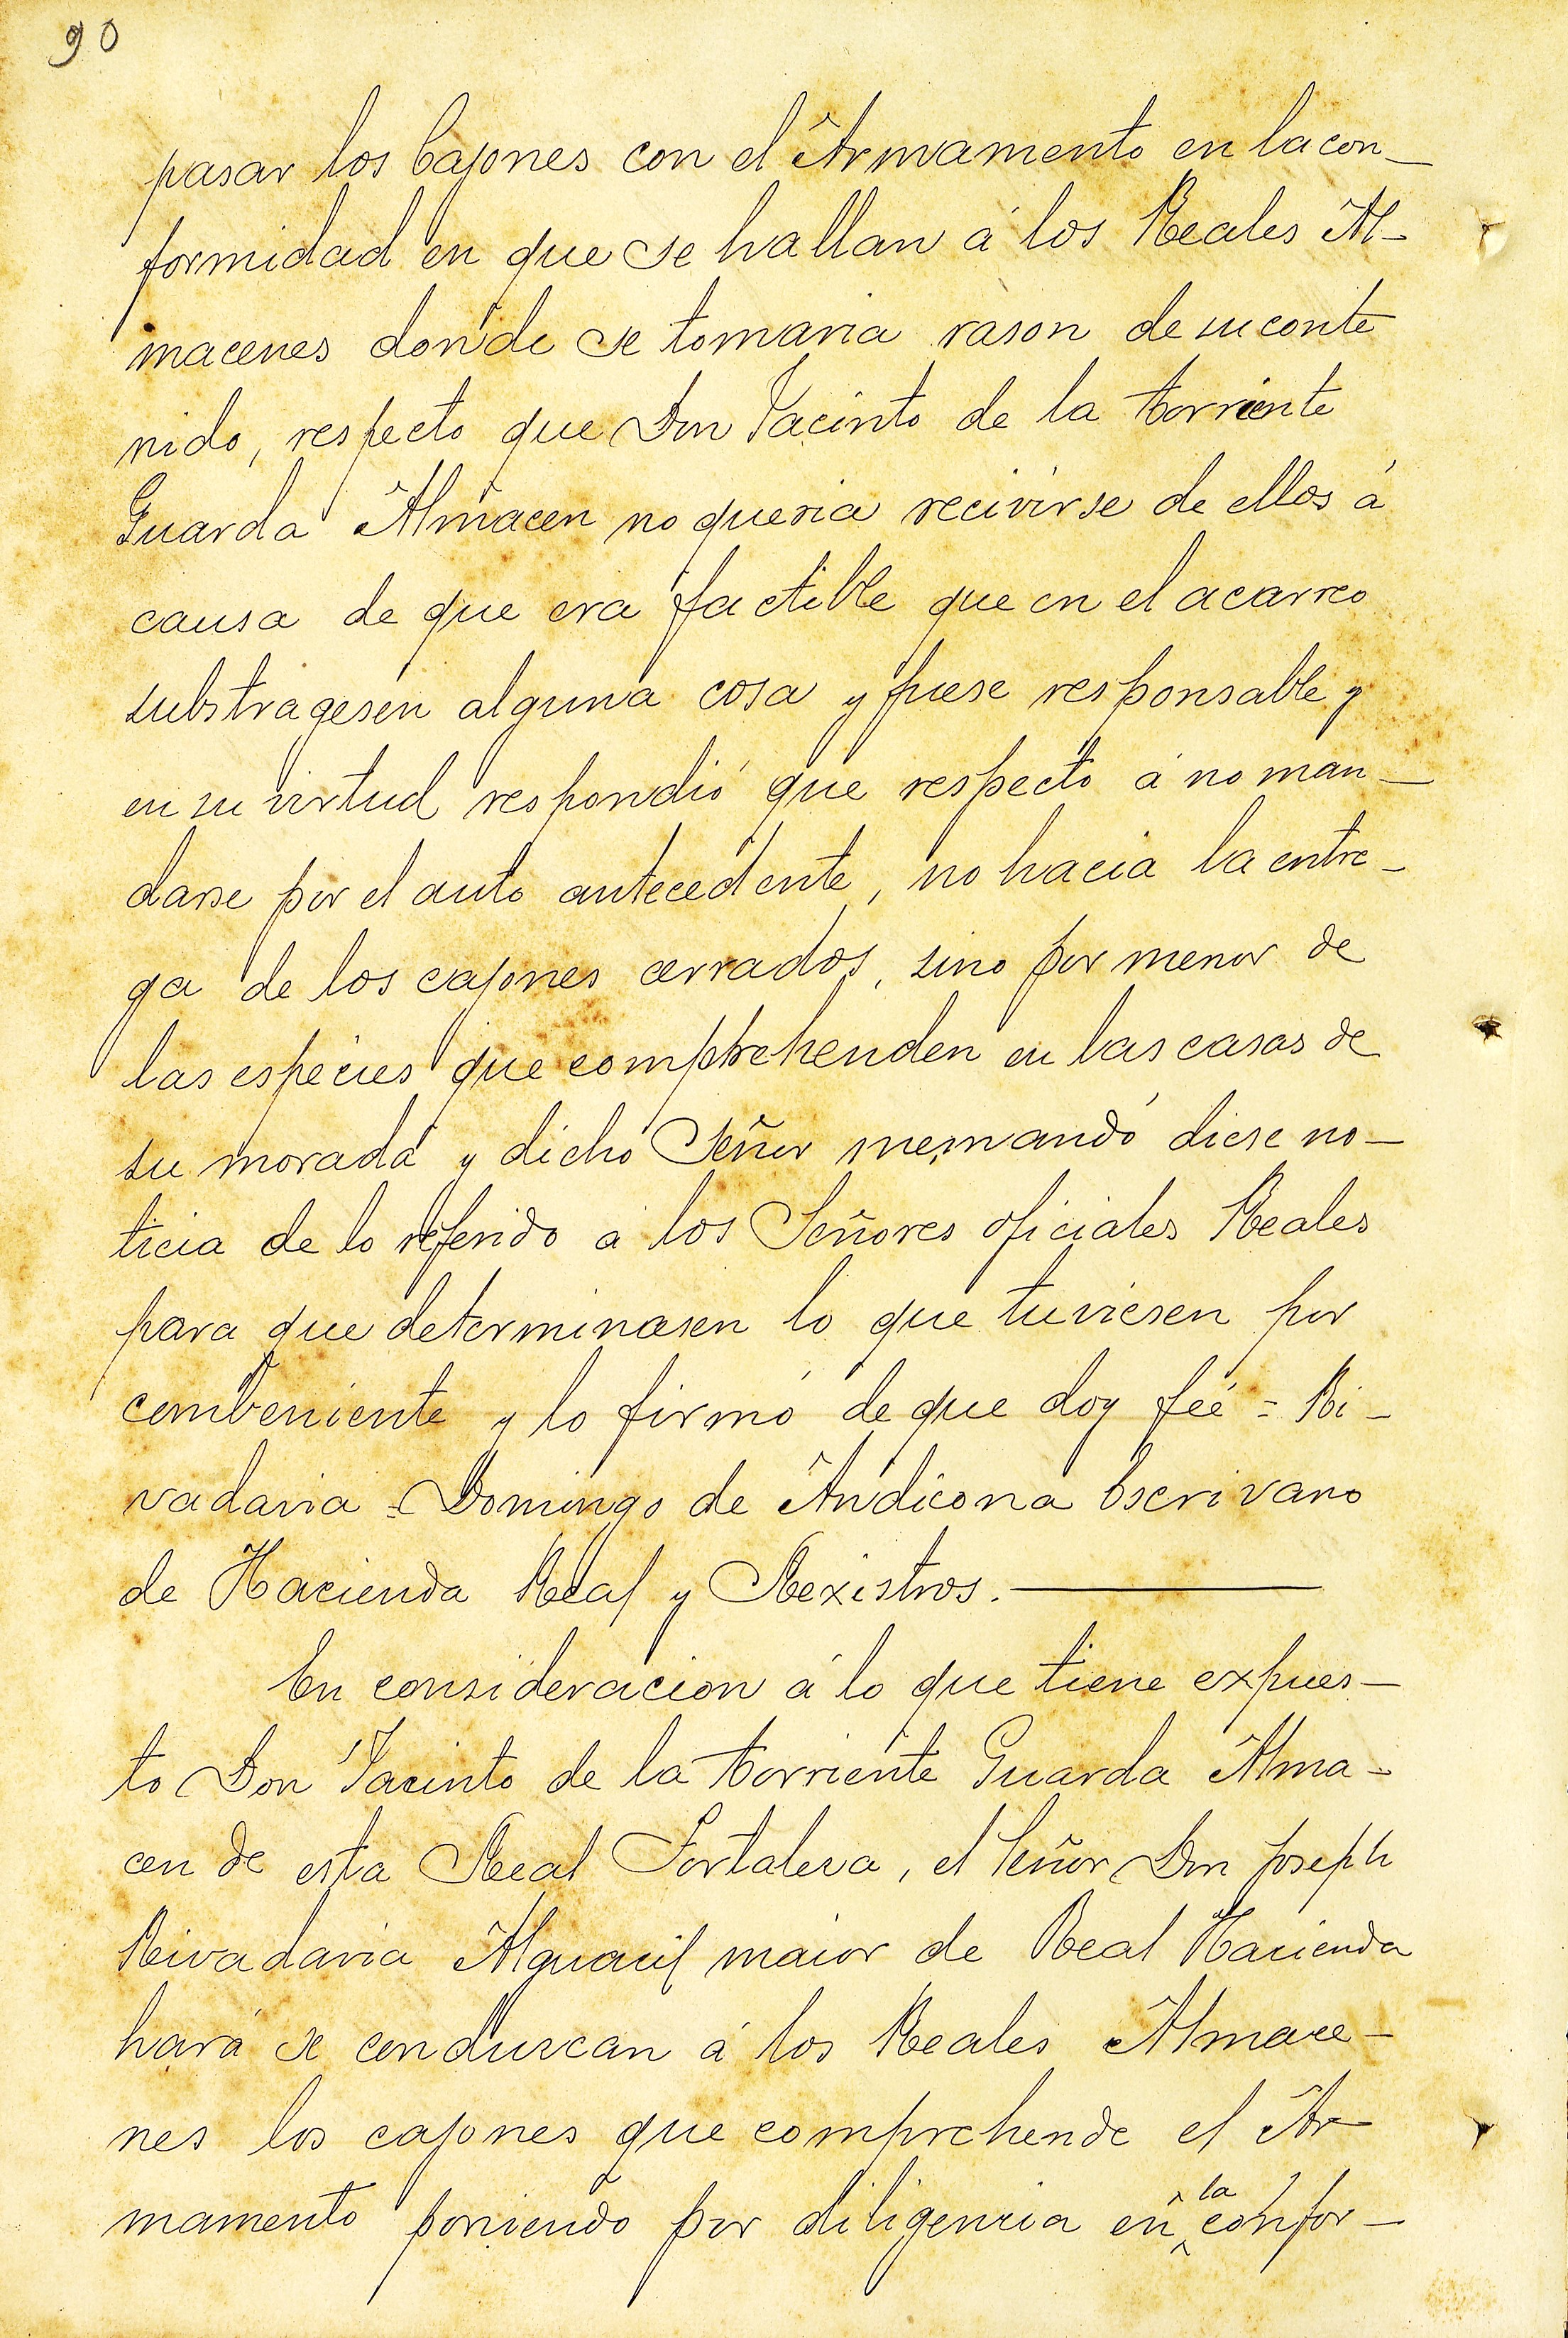 90
pasar los Cajones con el Armamento en la con-
formidad en que se hallan á los Reales Al-
macenes donde se tomaria rason de su conte
nido, respecto que Don Jacinto de la torriente
Guarda Almacen no queria recivirse de ellos á
causa de que era factible que en el acarreo
substragesen alguna cosa y fuese responsable y
en su virtud respondió que respecto á no man-
darse por el auto antecedente, no hacia la entre-
ga de los cajones cerrados, sino por menor de
las especies que comprehenden en las casas de
su morada y dicho Señor me mandó diese no-
ticia de lo referido a los Señores oficiales Reales
para que determinasen lo que tuviesen por
combeniente y lo firmó de que doy feé = Ri-
vadavia = Domingo de Andicona Escrivano
de Hacienda Real y Rexistros.
En consideracion á lo que tiene expues-
to Don Jacinto de la torriente Guarda Alma-
cen de esta Real Fortaleza, el Señor Don Joseph
Rivadavia Alguacil maior de Real Hacienda
hará se conduzcan á los Reales Almace-
nes los cajones que comprehende el Ar-
mamento poniendo por diligencia en la confor-